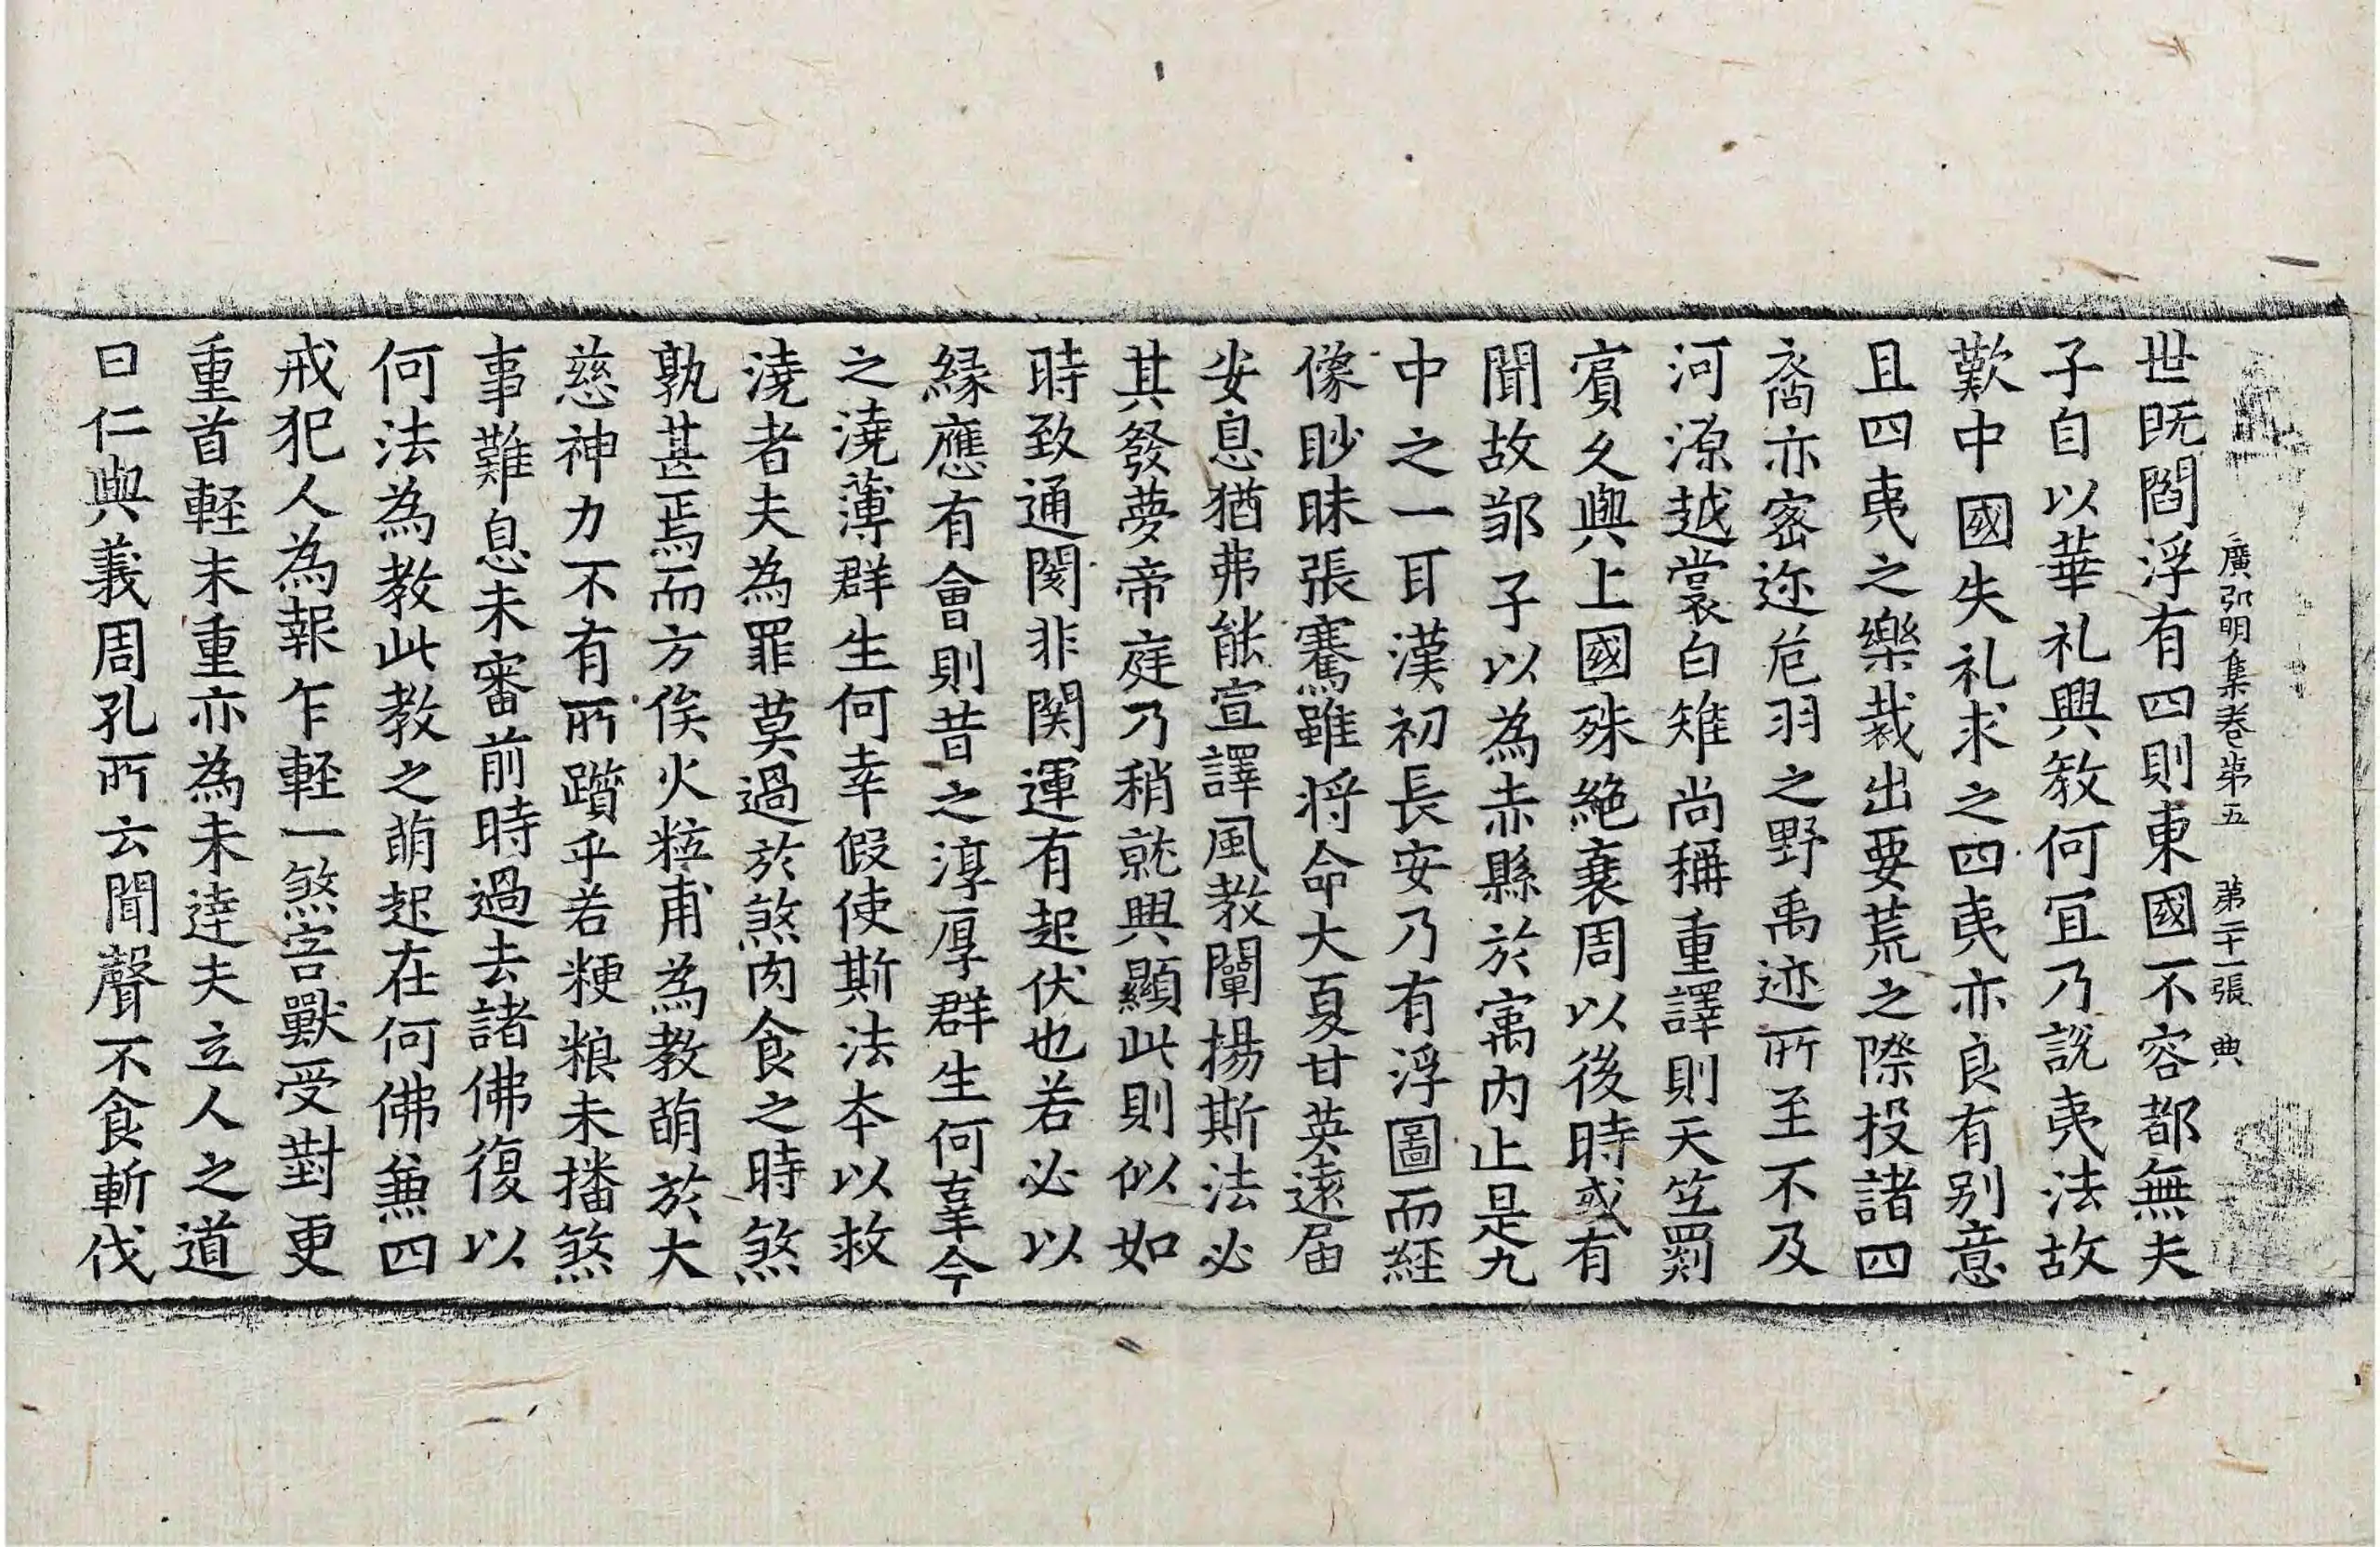 廣弘明集卷第五　第二十一張　典
世既閻浮有四則東國不容都無夫
子自以華礼興教何冝乃說夷法故
歎中國失礼求之四夷亦良有别意
且四夷之樂裁出要荒之際投諸四
裔亦密迩危羽之野禹迹所至不及
河源越裳白雉尚稱重譯則天竺罽
賔久與上國殊絶衰周以後時或有
聞故鄒子以為赤縣於寓内止是九
中之一耳漢初長安乃有浮圖而経
像眇昧張騫雖将命大夏甘英遠届
安息猶弗能宣譯風教闡揚斯法必
其發夢帝庭乃稍就興顯此則似如
時致通閡非関運有起伏也若必以
縁應有會則昔之淳厚群生何辜今
之澆薄群生何幸假使斯法本以救
澆者夫為罪莫過於煞肉食之時煞
孰甚焉而方俟火粒甫為教萌於大
慈神力不有所躓乎若粳粮未播煞
事難息未審前時過去諸佛復以
何法為教此教之萌起在何佛兼四
戒犯人為報乍軽一煞害獸受對更
重首軽末重亦為未達夫立人之道
曰仁與義周孔所云聞聲不食斬伐